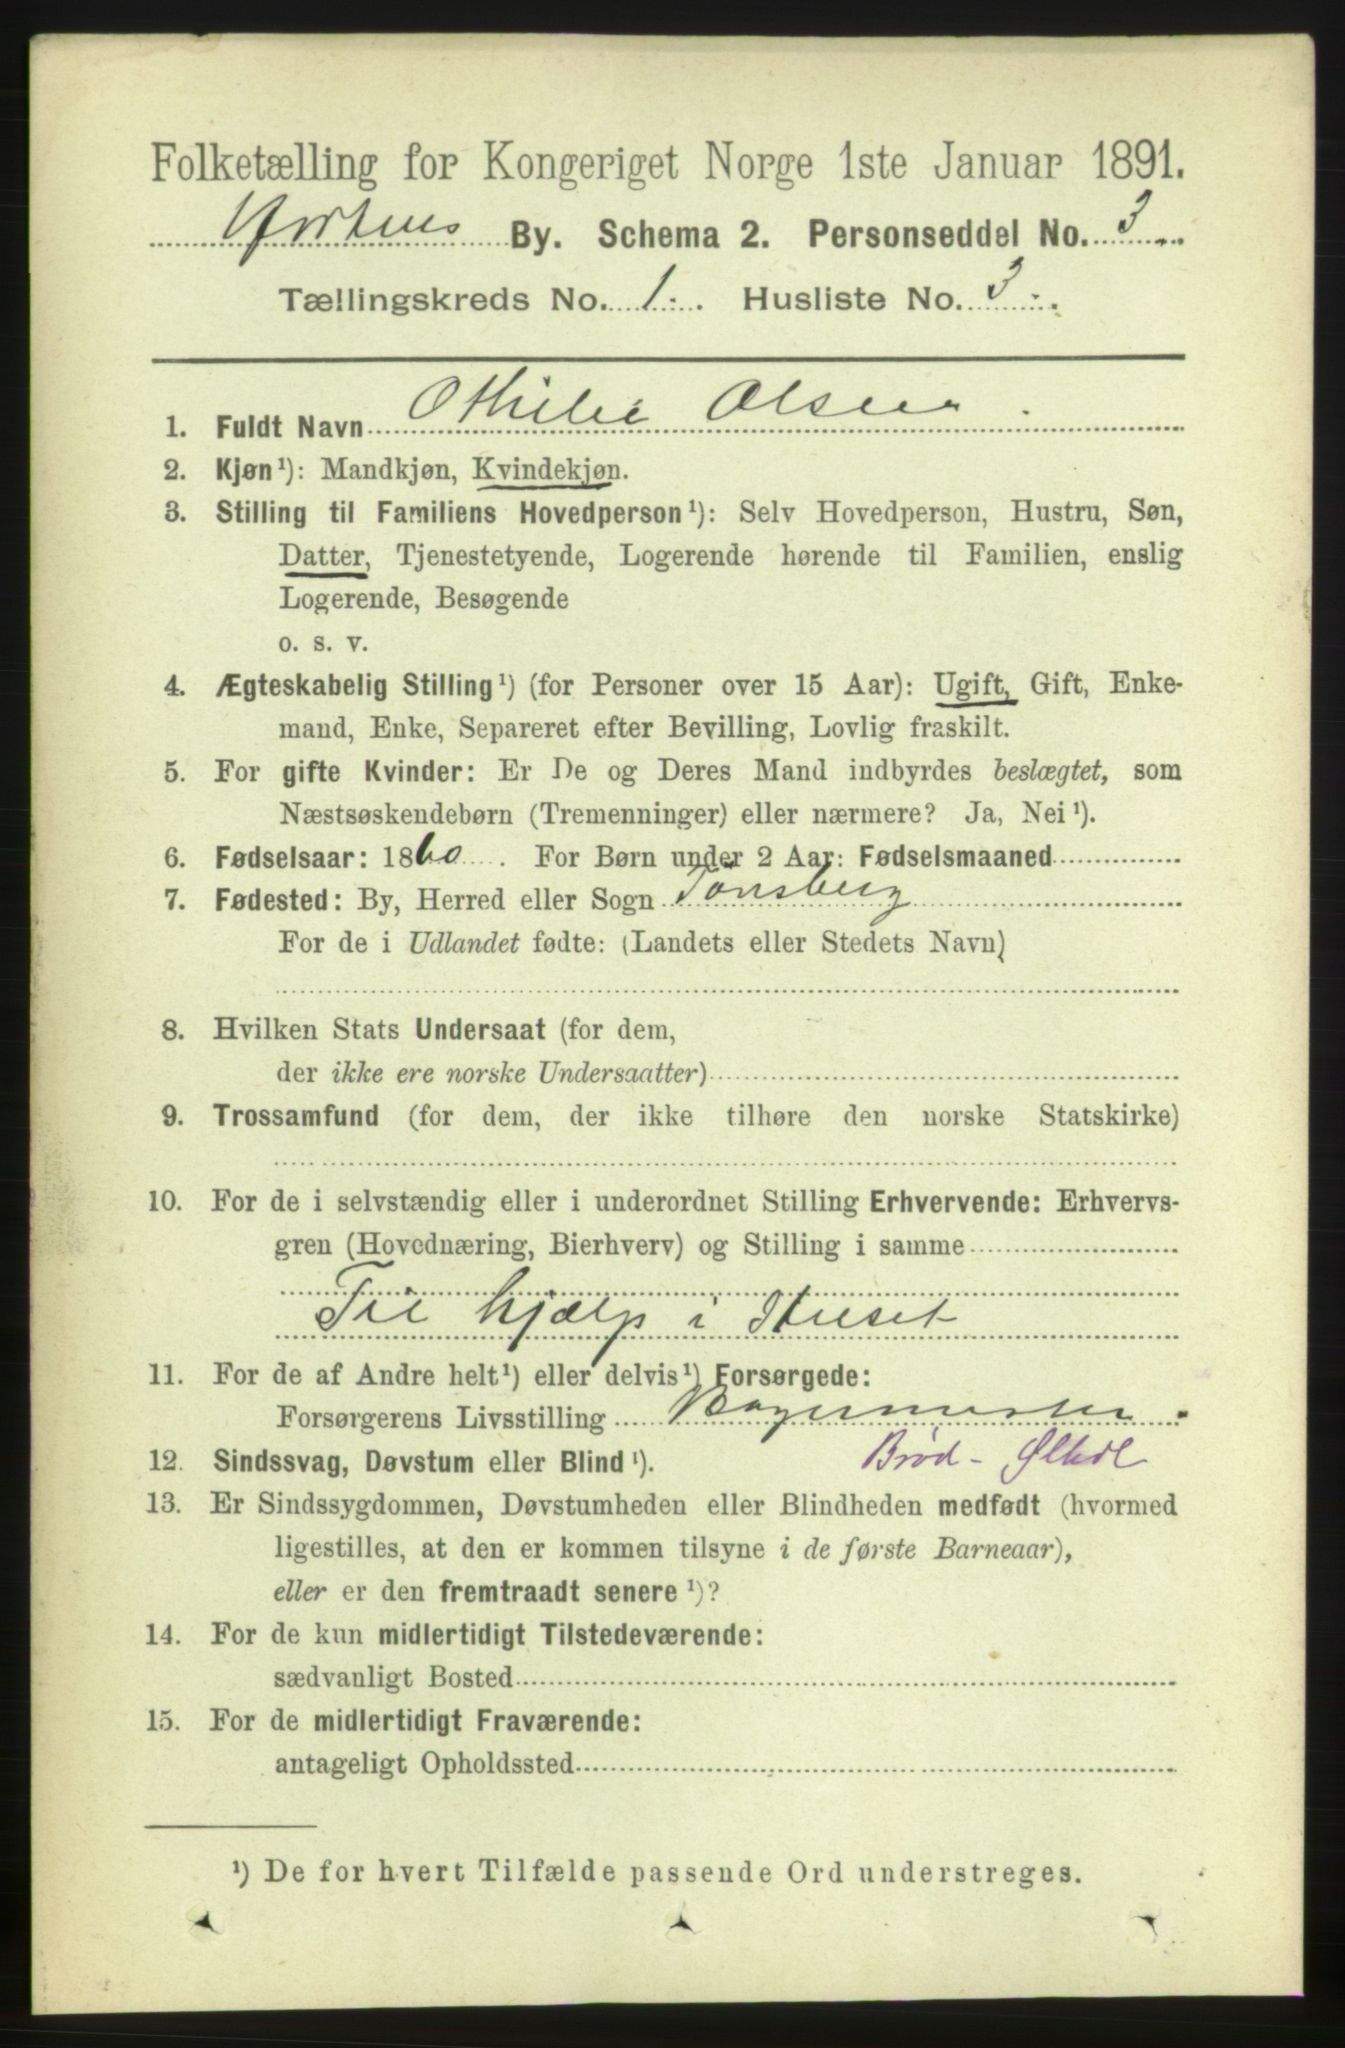 Folketælling for Kongeriget Norge 1ste Januar 1891.
Hortens By. Schema 2. Personseddel No. 3
Tællingskreds No. 1. Husliste No. 3.
1. Fuldt Navn Othilie Olsen.
2. Kjøn¹): Mandkjøn, Kvindekjøn.
3. Stilling til Familiens Hovedperson¹): Selv Hovedperson, Hustru, Søn,
Datter, Tjenestetyende, Logerende hørende til Familien, enslig
Logerende, Besøgende
o. s. v.
4. Ægteskabelig Stilling¹) (for Personer over 15 Aar): Ugift, Gift, Enke-
mand, Enke, Separeret efter Bevilling, Lovlig fraskilt.
5. For gifte Kvinder: Er De og Deres Mand indbyrdes beslægtet, som
Næstsøskendebørn (Tremenninger) eller nærmere? Ja, Nei¹).
6. Fødselsaar: 1860. For Børn under 2 Aar: Fødselsmaaned
7. Fødested: By, Herred eller Sogn Tønsberg
For de i Udlandet fødte: (Landets eller Stedets Navn)
8. Hvilken Stats Undersaat (for dem,
der ikke ere norske Undersaatter)
9. Trossamfund (for dem, der ikke tilhøre den norske Statskirke)
10. For de i selvstændig eller i underordnet Stilling Erhvervende: Erhvervs-
gren (Hovednæring, Bierhverv) og Stilling i samme
Til hjælp i Huset
11. For de af Andre helt¹) eller delvis¹) Forsørgede:
Forsørgerens Livsstilling Bagermester.
12. Sindssvag, Døvstum eller Blind¹). Brød-
13. Er Sindssygdommen, Døvstumheden eller Blindheden medfødt (hvormed
ligestilles, at den er kommen tilsyne i de første Barneaar),
eller er den fremtraadt senere¹)?
14. For de kun midlertidigt Tilstedeværende:
sædvanligt Bosted
15. For de midlertidigt Fraværende:
antageligt Opholdssted
¹) De for hvert Tilfælde passende Ord understreges.